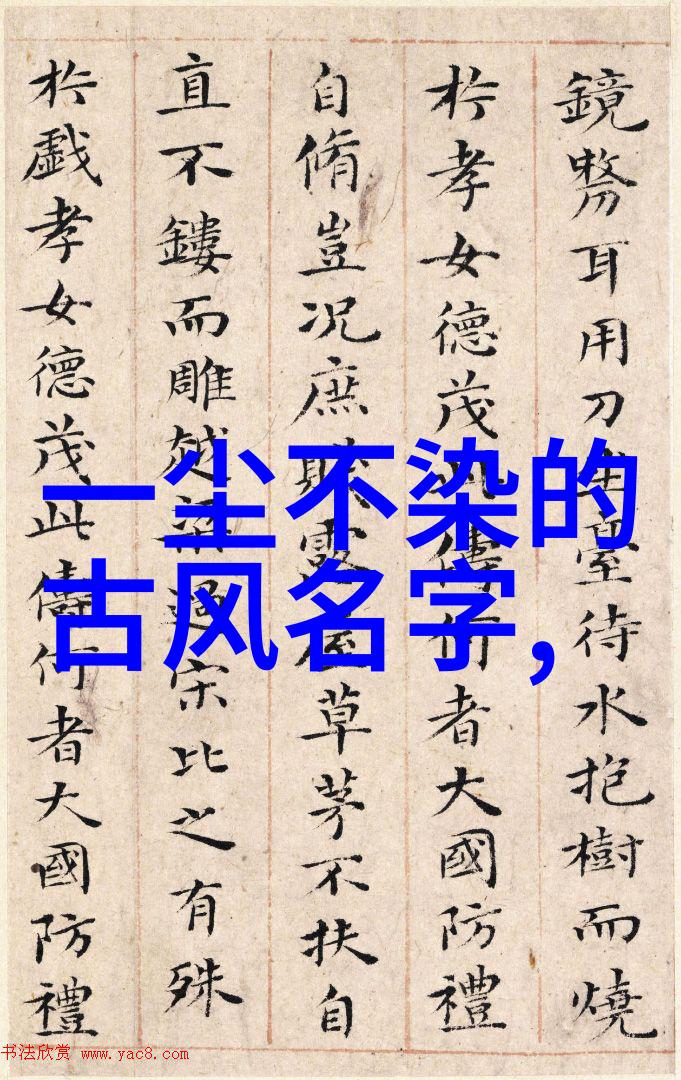 鏡剺耳用刀坐臺待水抱樹而燒
於孝女德茂此儔何者大國防禮
自脩豈况庶賤露屋草茅不扶自
直不鏤而雕越梁過宋比之有殊
於戲孝女德茂此儔何者大國防禮
一尘不染的
古风名字,
书法欣赏 www.yac8.com